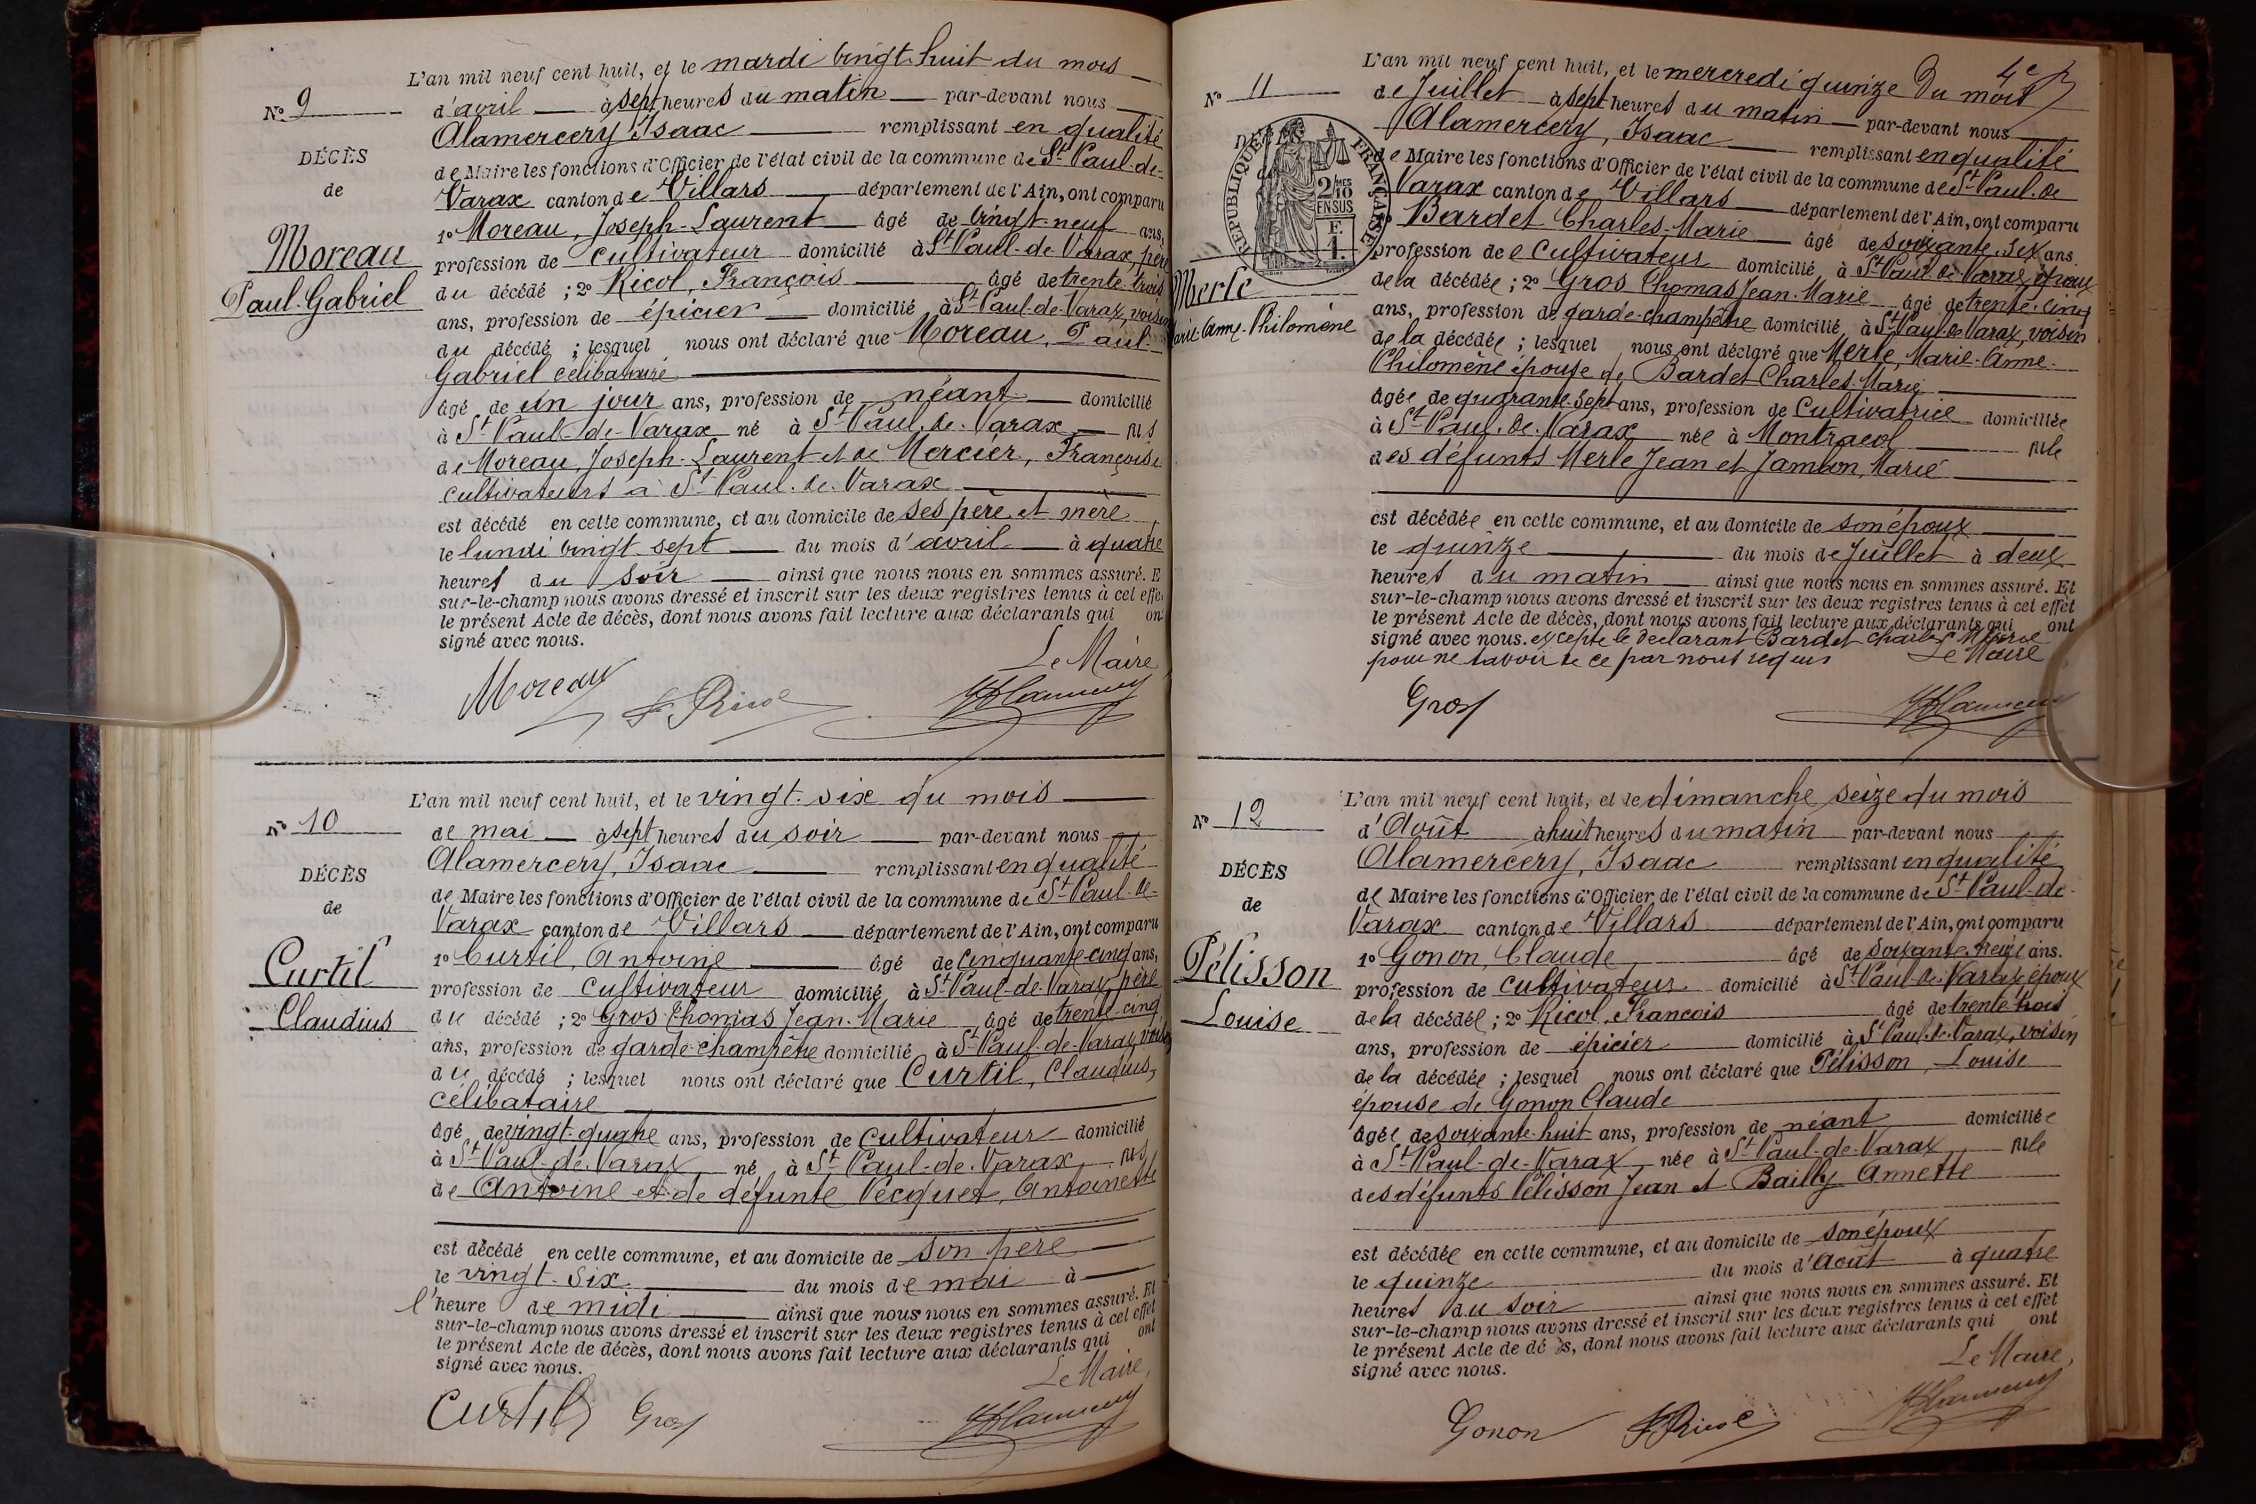 L'an mil neuf cent huit, et le mardi vingt-huit du mois
N° 9
d'avril à sept heures du matin par-devant nous
Alamercery Isaac remplissant en qualité
DÉCÈS
de Maire les fonctions d'Officier de l'état civil de la commune de St Paul-de-
de
Varax canton de Villars département de l'Ain, ont comparu
1° Moreau, Joseph-Laurent âgé de vingt-neuf ans,
Moreau
profession de cultivateur domicilié à St Paul-de-Varax, père
Paul-Gabriel
du décédé ; 2° Ricol, François âgé de trente-trois
ans, profession de épicier domicilié à St Paul-de-Varax, voisin
du décédé ; lesquel nous ont déclaré que Moreau, Paul-
Gabriel célibataire
âgé de un jour ans, profession de néant domicilié
à St Paul-de-Varax né à St Paul-de-Varax fils
de Moreau, Joseph-Laurent et de Mercier, Françoise
cultivateurs à St Paul-de-Varax
est décédé en cette commune, et au domicile de ses père et mère
le lundi vingt-sept du mois d'avril à quatre
heures du soir ainsi que nous nous en sommes assuré. E
sur-le-champ nous avons dressé et inscrit sur les deux registres tenus à cet effe
le présent Acte de décès, dont nous avons fait lecture aux déclarants qui on
signé avec nous.
Le Maire
Moreau F. Ricol
L'an mil neuf cent huit, et le vingt-six du mois
N° 10
de mai à sept heures du soir par-devant nous
Alamercery, Isaac remplissant en qualité
DÉCÈS
de Maire les fonctions d'Officier de l'état civil de la commune de St Paul-de-
de
Varax canton de Villars département de l'Ain, ont comparu
1° Curtil, Antoine âgé de cinquante-cinq ans,
Curtil
profession de cultivateur domicilié à St Paul-de-Varax, père
Claudius
du décédé ; 2° Gros Thomas Jean-Marie âgé de trente-cinq
ans, profession de garde-champêtre domicilié à St Paul-de-Varax, voisin
du décédé ; lesquel nous ont déclaré que Curtil, Claudius,
célibataire
âgé de vingt-quatre ans, profession de cultivateur domicilié
à St Paul-de-Varax né à St Paul-de-Varax fils
de Antoine et de défunte Pecquet, Antoinette
est décédé en cette commune, et au domicile de son père
le vingt-six du mois de mai à
l'heure de midi ainsi que nous nous en sommes assuré. Et
sur-le-champ nous avons dressé et inscrit sur les deux registres tenus à cet effet
le présent Acte de décès, dont nous avons fait lecture aux déclarants qui ont
signé avec nous.
Le Maire,
Curtil Gros
4e
L'an mil neuf cent huit, et le mercredi quinze du mois
N° 11
de Juillet à sept heures du matin par-devant nous
Alamercery, Isaac remplissant en qualité
RÉPUBLIQUE FRANÇAISE
2/10 MES EN SUS
F. 1.
de Maire les fonctions d'Officier de l'état civil de la commune de St Paul-de
Varax canton de Villars département de l'Ain, ont comparu
Bardet Charles-Marie âgé de soixante-six ans.
profession de cultivateur domicilié à St Paul-de-Varax, époux
Merle
de la décédée ; 2° Gros Thomas Jean-Marie âgé de trente-cinq
ans, profession de garde-champêtre domicilié à St Paul de Varax, voisin
Anne-Philomène
de la décédée ; lesquel nous ont déclaré que Merle, Marie-Anne-
Philomène épouse de Bardet Charles-Marie
âgée de quarante-sept ans, profession de Cultivatrice domiciliée
à St Paul-de-Varax née à Montracol fille
des défunts Merle Jean et Jambon, Marie
est décédée en cette commune, et au domicile de son époux
le quinze du mois de Juillet à deux
heures du matin ainsi que nous nous en sommes assuré. Et
sur-le-champ nous avons dressé et inscrit sur les deux registres tenus à cet effet
le présent Acte de décès, dont nous avons fait lecture aux déclarants qui ont
signé avec nous. excepté le déclarant Bardet Charles Marie
pour ne savoir de ce par nous requis Le Maire
Gros
L'an mil neuf cent huit, et le dimanche seize du mois
N° 12
d'Août à huit heures du matin par-devant nous
Alamercery, Isaac remplissant en qualité
DÉCÈS
de Maire les fonctions d'Officier de l'état civil de la commune de St Paul-de-
de
Varax canton de Villars département de l'Ain, ont comparu
1° Gonon, Claude âgé de soixante-treize ans.
Pélisson
profession de cultivateur domicilié à St Paul-de-Varax époux
Louise
de la décédée ; 2° Ricol, François âgé de trente-trois
ans, profession de épicier domicilié à St Paul-de-Varax, voisin
de la décédée ; lesquel nous ont déclaré que Pélisson, Louise
épouse de Gonon Claude
âgée de soixante-huit ans, profession de néant domiciliée
à St Paul-de-Varax née à St Paul-de-Varax fille
des défunts Pélisson Jean et Bailly Annette
est décédée en cette commune, et au domicile de son époux
le quinze du mois d'Août à quatre
heures du soir ainsi que nous nous en sommes assuré. Et
sur-le-champ nous avons dressé et inscrit sur les deux registres tenus à cet effet
le présent Acte de dé ès, dont nous avons fait lecture aux déclarants qui ont
signé avec nous.
Le Maire,
Gonon F. Ricol